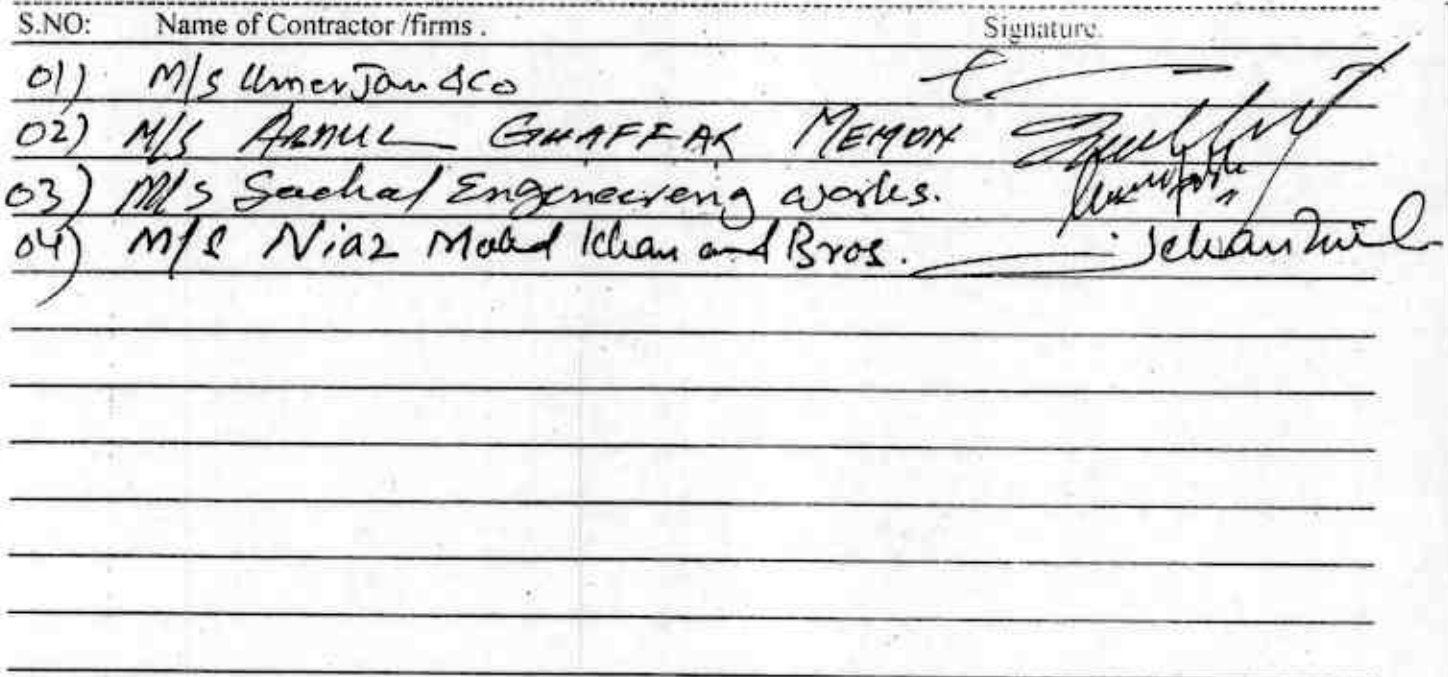 S.NO: Name of Contractor /firms . Signature.
01) M/S Umer Jan & Co
02) M/S ABDUL GHAFFAR MEMON
03) M/S Sachal Engeneereng works.
04) M/S Niaz Mohd Khan and Bros.